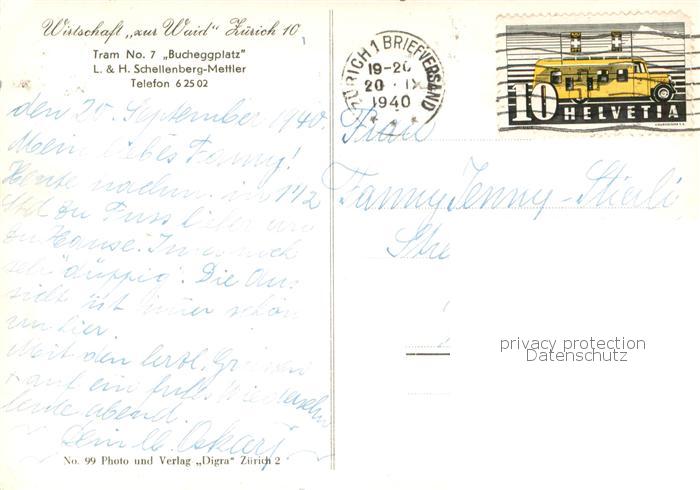 Wirtschaft „zur Waid" Zürich 10
Tram No. 7 „Bucheggplatz"
L. & H. Schellenberg-Mettler
Telefon 6 25 02
den 20. September 1940.
Mein liebes Fanny!
Heute nachm. in 1 1/2
Std zu Fuss
zu Hause.
sehr "düppig". Die Aus-
sicht ist immer schön
von hier.
Mit den herzl. Grüssen
& auf ein frohes Wiedersehn
heute abend.
Dein lb. Oskar
No. 99 Photo und Verlag „Digra" Zürich 2
ZÜRICH 1 BRIEFVERSAND
19-20
20. IX
1940
10 HELVETIA
Frau
Fanny Jenny-Stierli
privacy protection
Datenschutz